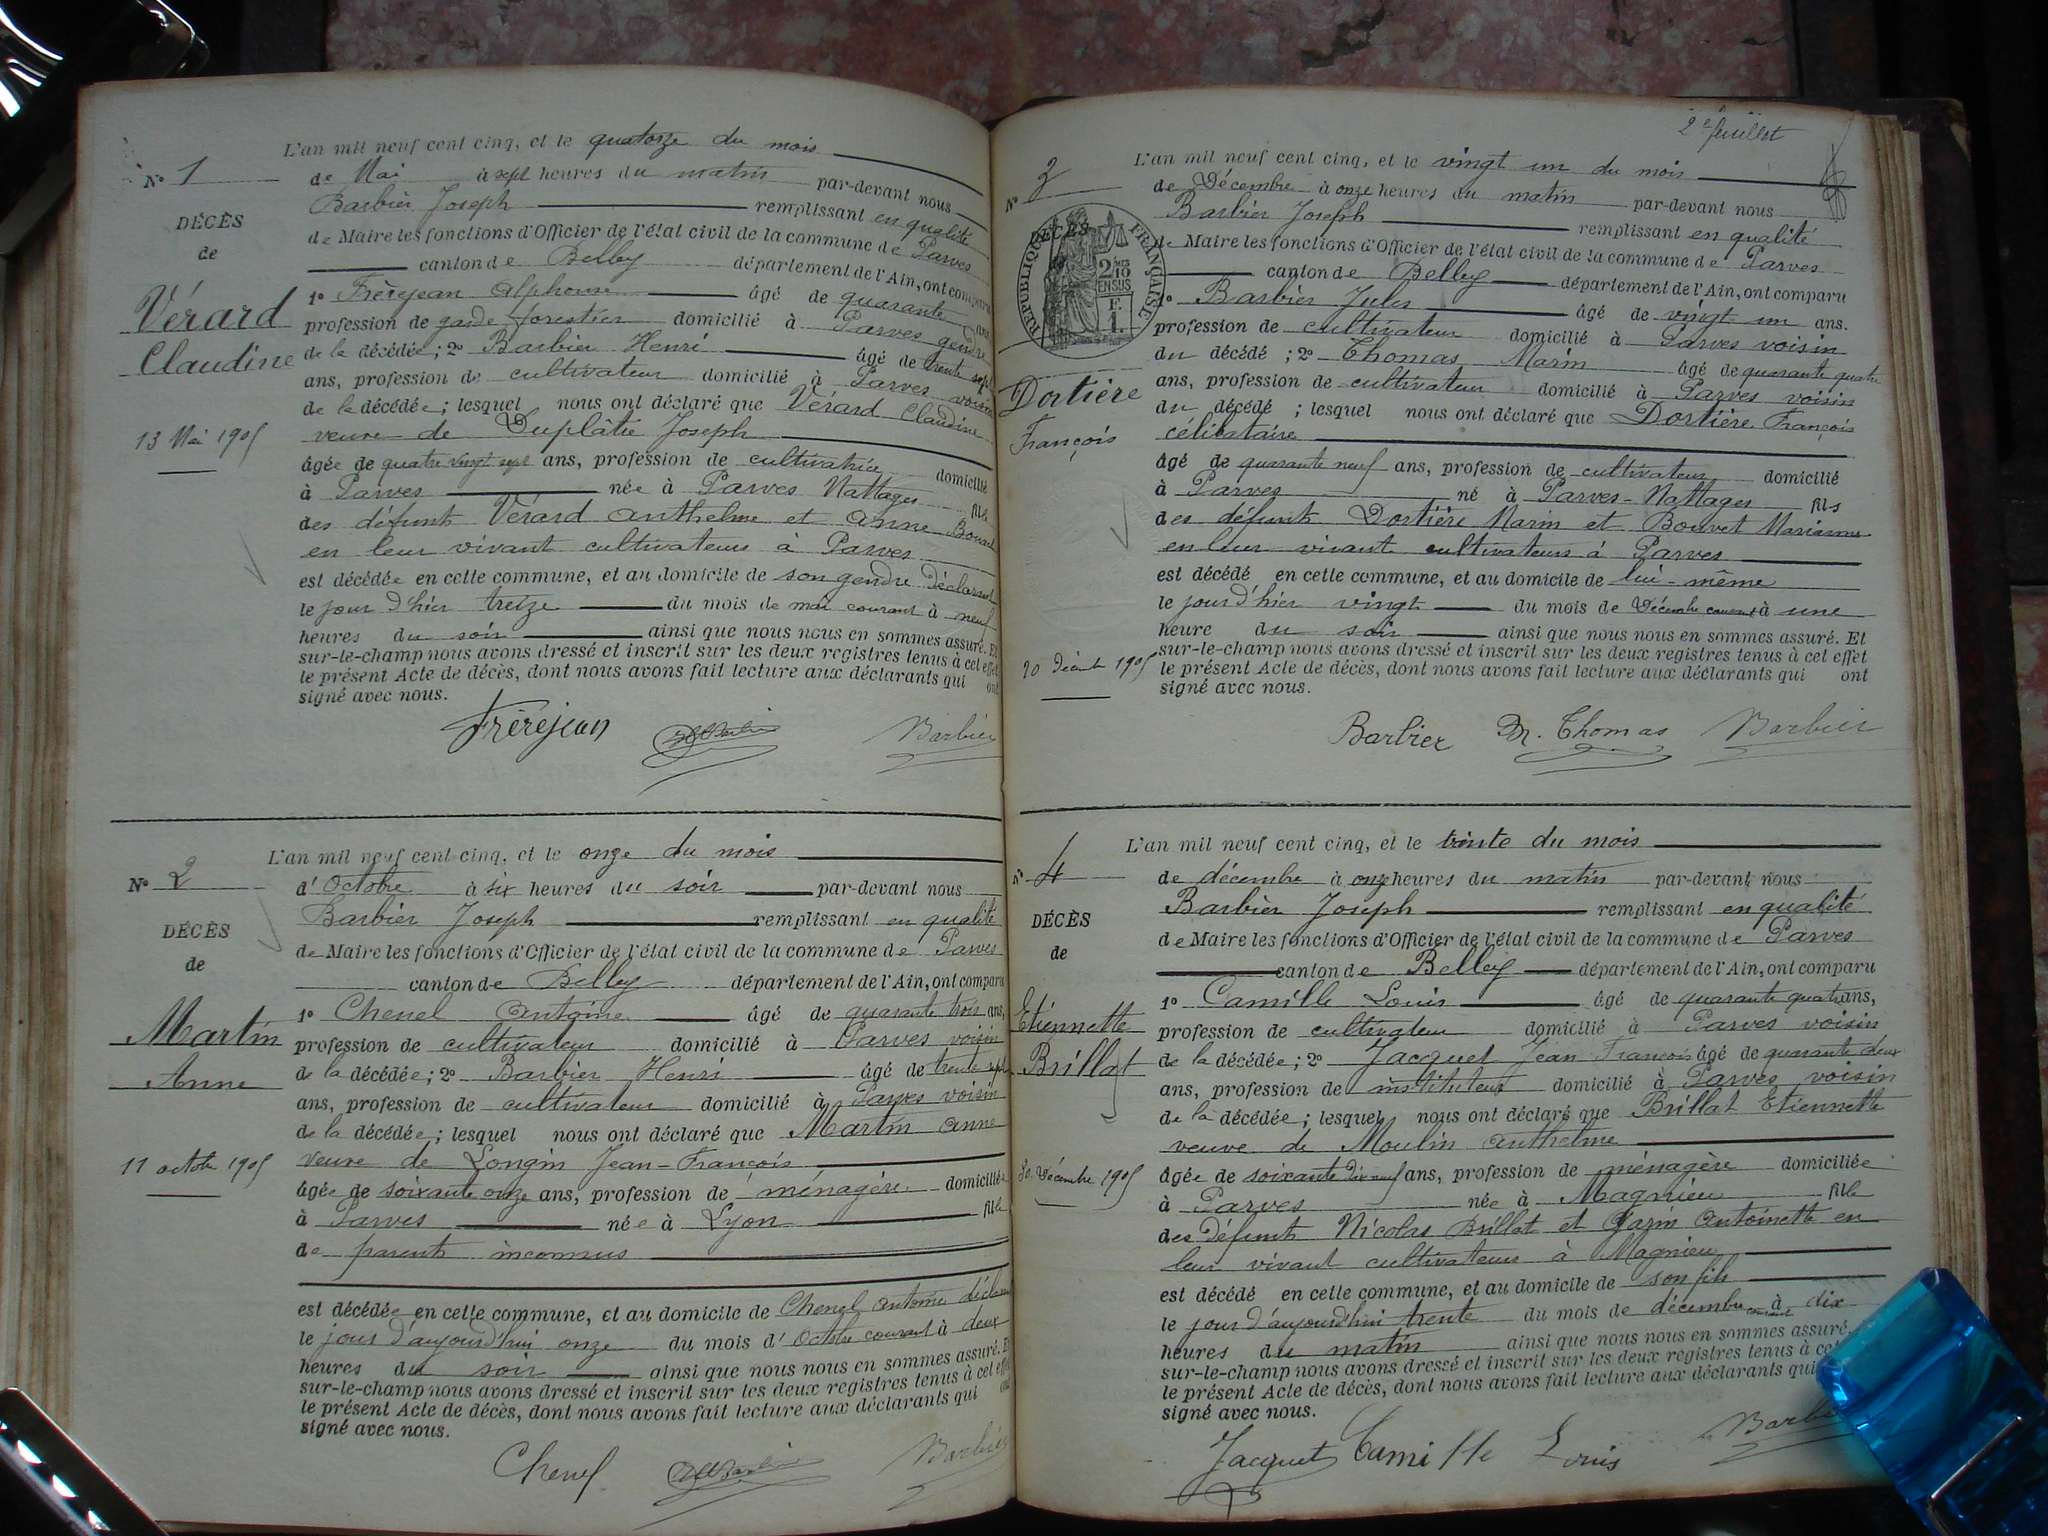 L'an mil neuf cent cinq, et le quatorze du mois
No 1
de Mai à sept heures du matin par-devant nous
Barbier Joseph remplissant en qualité
DÉCÈS
de
de Maire les fonctions d'Officier de l'état civil de la commune de Parves
canton de Belley département de l'Ain, ont comparu
Vérard
Claudine
1o Frèrejean Alphonse âgé de quarante ans,
profession de garde forestier domicilié à Parves gendre
de la décédée; 2o Barbier Henri âgé de trente sept
ans, profession de cultivateur domicilié à Parves voisin
de la décédée; lesquel nous ont déclaré que Vérard Claudine
13 Mai 1905
veuve de Duplâtre Joseph
âgée de quatre vingt sept ans, profession de cultivatrice domicilié
à Parves née à Parves Nattages fille
des défunts Vérard Anthelme et Anne
en leur vivant cultivateurs à Parves
est décédée en cette commune, et au domicile de son gendre déclarant
le jour d'hier treize du mois de mai courant à neuf
heures du soir ainsi que nous nous en sommes assuré. Et
sur-le-champ nous avons dressé et inscrit sur les deux registres tenus à cet effet
le présent Acte de décès, dont nous avons fait lecture aux déclarants qui ont
signé avec nous.
Frèrejean Barbier
L'an mil neuf cent cinq, et le onze du mois
No 2
d'Octobre à six heures du soir par-devant nous
Barbier Joseph remplissant en qualité
DÉCÈS
de
de Maire les fonctions d'Officier de l'état civil de la commune de Parves
canton de Belley département de l'Ain, ont comparu
Martin
Anne
1o Chenel Antoine âgé de quarante trois ans,
profession de cultivateur domicilié à Parves voisin
de la décédée; 2o Barbier Henri âgé de trente sept
ans, profession de cultivateur domicilié à Parves voisin
de la décédée; lesquel nous ont déclaré que Martin Anne
11 octobre 1905
veuve de Longin Jean-François
âgée de soixante onze ans, profession de ménagère domiciliée
à Parves née à Lyon fille
de parents inconnus
est décédée en cette commune, et au domicile de Chenel Antoine déclarant
le jour d'aujourd'hui onze du mois d'Octobre courant à deux
heures du soir ainsi que nous nous en sommes assuré. Et
sur-le-champ nous avons dressé et inscrit sur les deux registres tenus à cet effet
le présent Acte de décès, dont nous avons fait lecture aux déclarants qui ont
signé avec nous.
Chenel Barbier
2e feuillet
L'an mil neuf cent cinq, et le vingt un du mois
No 3
de Décembre à onze heures du matin par-devant nous
Barbier Joseph remplissant en qualité
DÉCÈS
RÉPUBLIQUE FRANÇAISE
de Maire les fonctions d'Officier de l'état civil de la commune de Parves
canton de Belley département de l'Ain, ont comparu
1o Barbier Jules âgé de vingt un ans.
profession de cultivateur domicilié à Parves voisin
du décédé; 2o Thomas Marin âgé de quarante quatre
Dortière
François
ans, profession de cultivateur domicilié à Parves voisin
du décédé; lesquel nous ont déclaré que Dortière François
célibataire
âgé de quarante neuf ans, profession de cultivateur domicilié
à Parves né à Parves-Nattages fils
des défunts Dortière Marin et Bouvet Marianne
en leur vivant cultivateurs à Parves
est décédé en cette commune, et au domicile de lui-même
le jour d'hier vingt du mois de Décembre courant à une
heure du soir ainsi que nous nous en sommes assuré. Et
20 Décembre 1905
sur-le-champ nous avons dressé et inscrit sur les deux registres tenus à cet effet
le présent Acte de décès, dont nous avons fait lecture aux déclarants qui ont
signé avec nous.
Barbier M. Thomas Barbier
L'an mil neuf cent cinq, et le trente du mois
No 4
de décembre à onze heures du matin par-devant nous
Barbier Joseph remplissant en qualité
DÉCÈS
de
de Maire les fonctions d'Officier de l'état civil de la commune de Parves
canton de Belley département de l'Ain, ont comparu
Etiennette
Brillat
1o Camille Louis âgé de quarante quatre ans,
profession de cultivateur domicilié à Parves voisin
de la décédée; 2o Jacquet Jean François âgé de quarante deux
ans, profession de instituteur domicilié à Parves voisin
de la décédée; lesquel nous ont déclaré que Brillat Etiennette
veuve de Moulin Anthelme
30 Décembre 1905
âgée de soixante dix neuf ans, profession de ménagère domiciliée
à Parves née à Magnieu fille
des défunts Nicolas Brillat et Antoinette en
leur vivant cultivateurs à Magnieu
est décédé en cette commune, et au domicile de son fils
le jour d'aujourd'hui trente du mois de décembre courant à dix
heures du matin ainsi que nous nous en sommes assuré.
sur-le-champ nous avons dressé et inscrit sur les deux registres tenus à cet
le présent Acte de décès, dont nous avons fait lecture aux déclarants qui
signé avec nous.
Jacquet Camille Louis Barbier